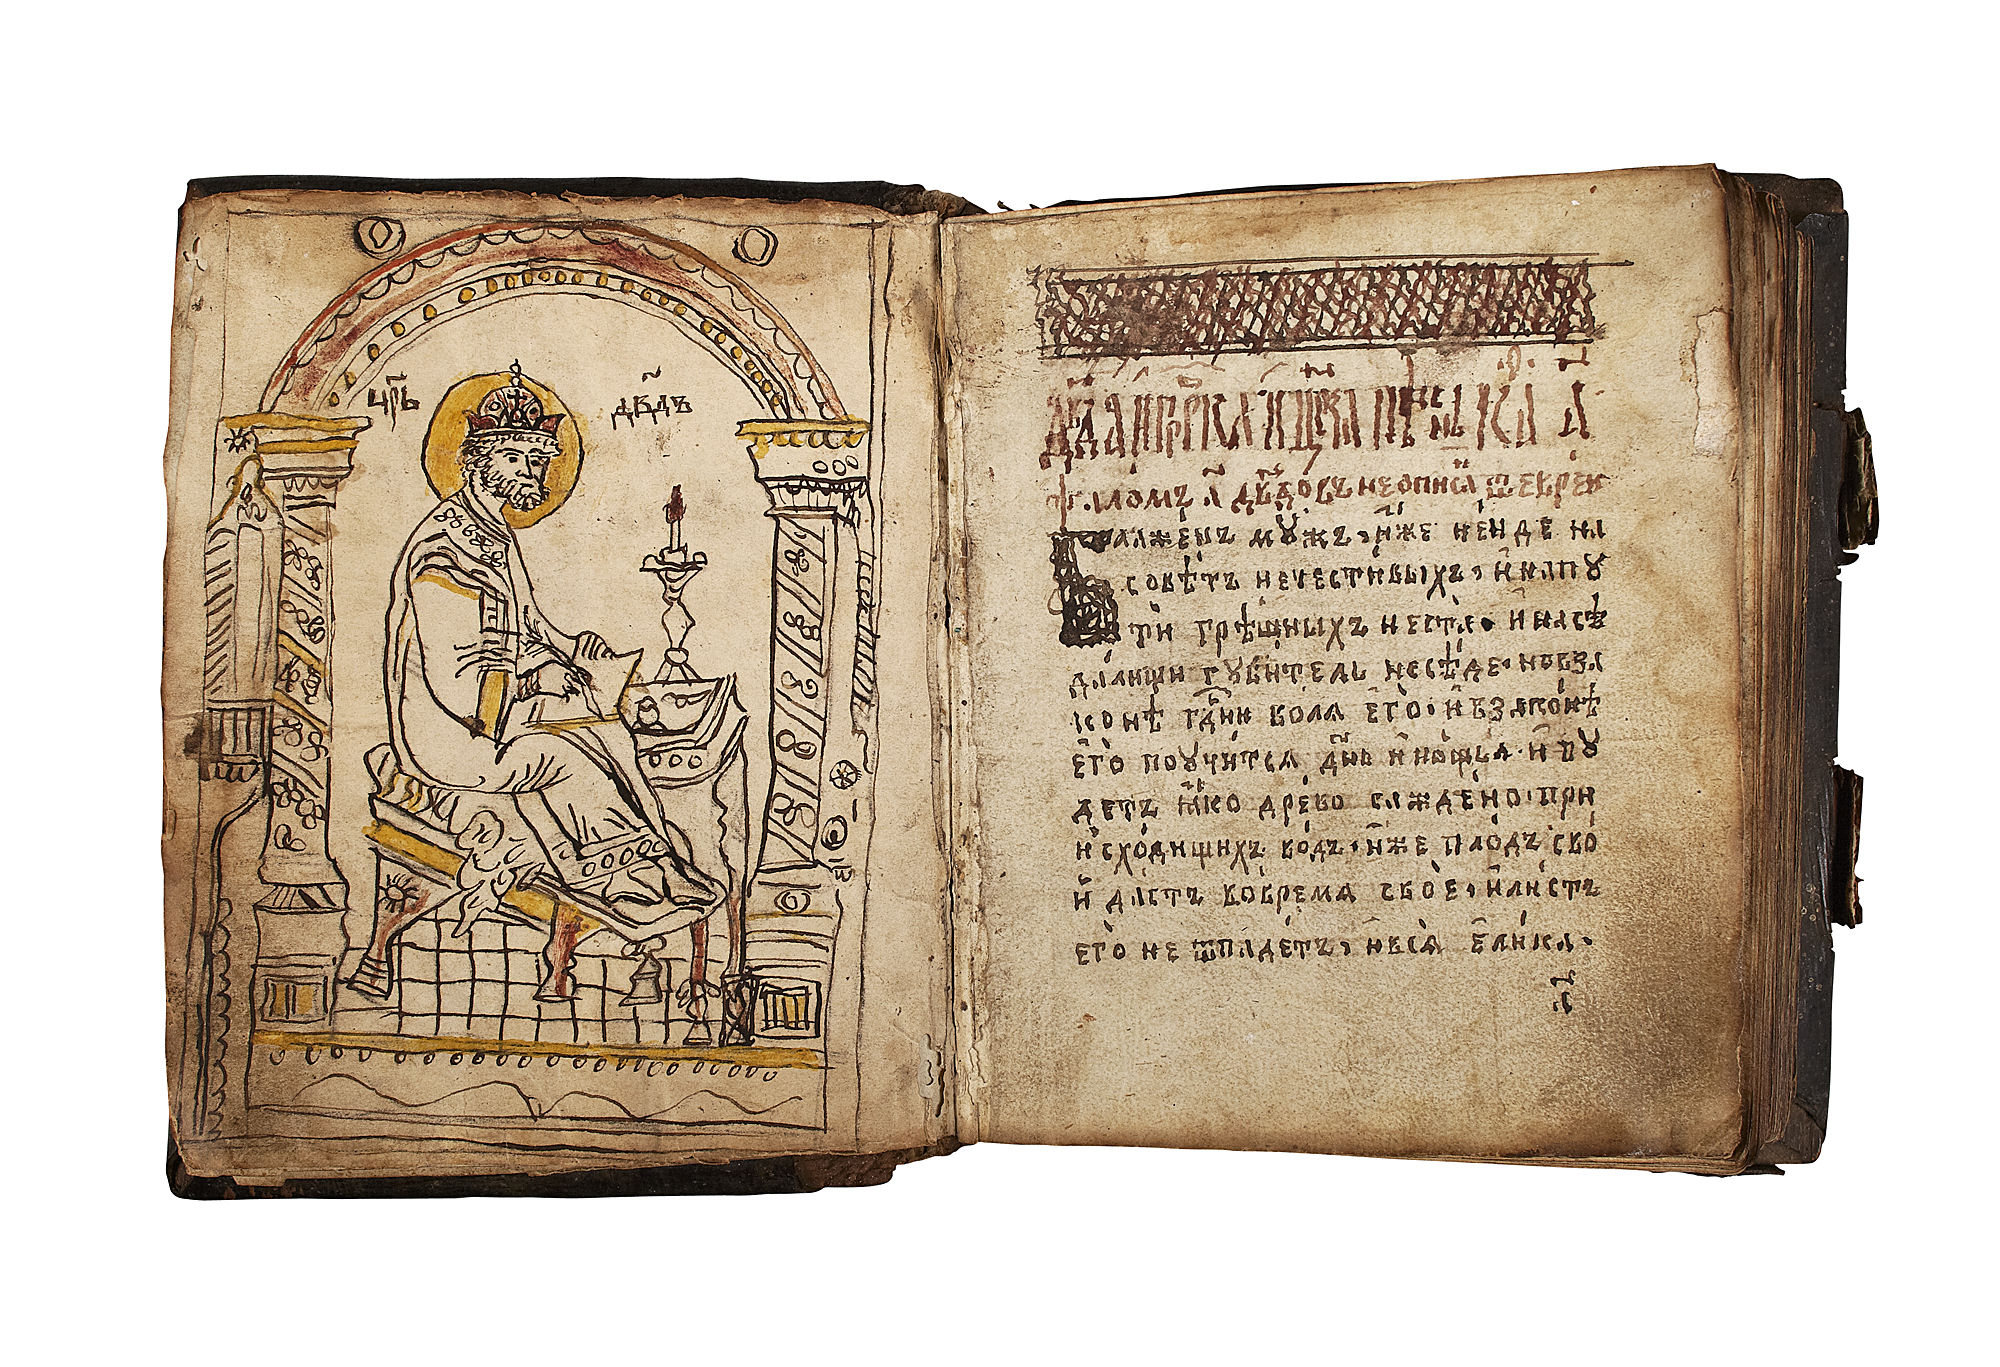 цр҃ь дв҃дъ
дв҃да пррⷪ҇ка и цр҃ѧ пѣснь
ѱаломъ а҃ дв҃довъ не описа́нъ ѿ еврей
Блаже́нъ мꙋжъ, и́же не и́де на
совѣтъ нечестивыхъ, и҆ на пꙋ
ти грѣшныхъ не ста̀. и҆ на сѣ
да́лищи гꙋби́тель не сѣ́де. но въ за
ко́нѣ гдⷭ҇ни во́лѧ є҆гѡ̀. и҆ въ зако́нѣ
є҆гѡ̀ поꙋчи́тсѧ дн҃ь и҆ но́щь. и҆ бꙋ
детъ ꙗ҆́ко дре́во сажде́но при
и҆схо́дищихъ во́дъ. и҆́же пло́дъ сво
й да́стъ во вре́мѧ своѐ. и҆ ли́стъ
є҆гѡ̀ не ѿпаде́тъ, и҆ всѧ̑ є҆ли́ка.
а҃